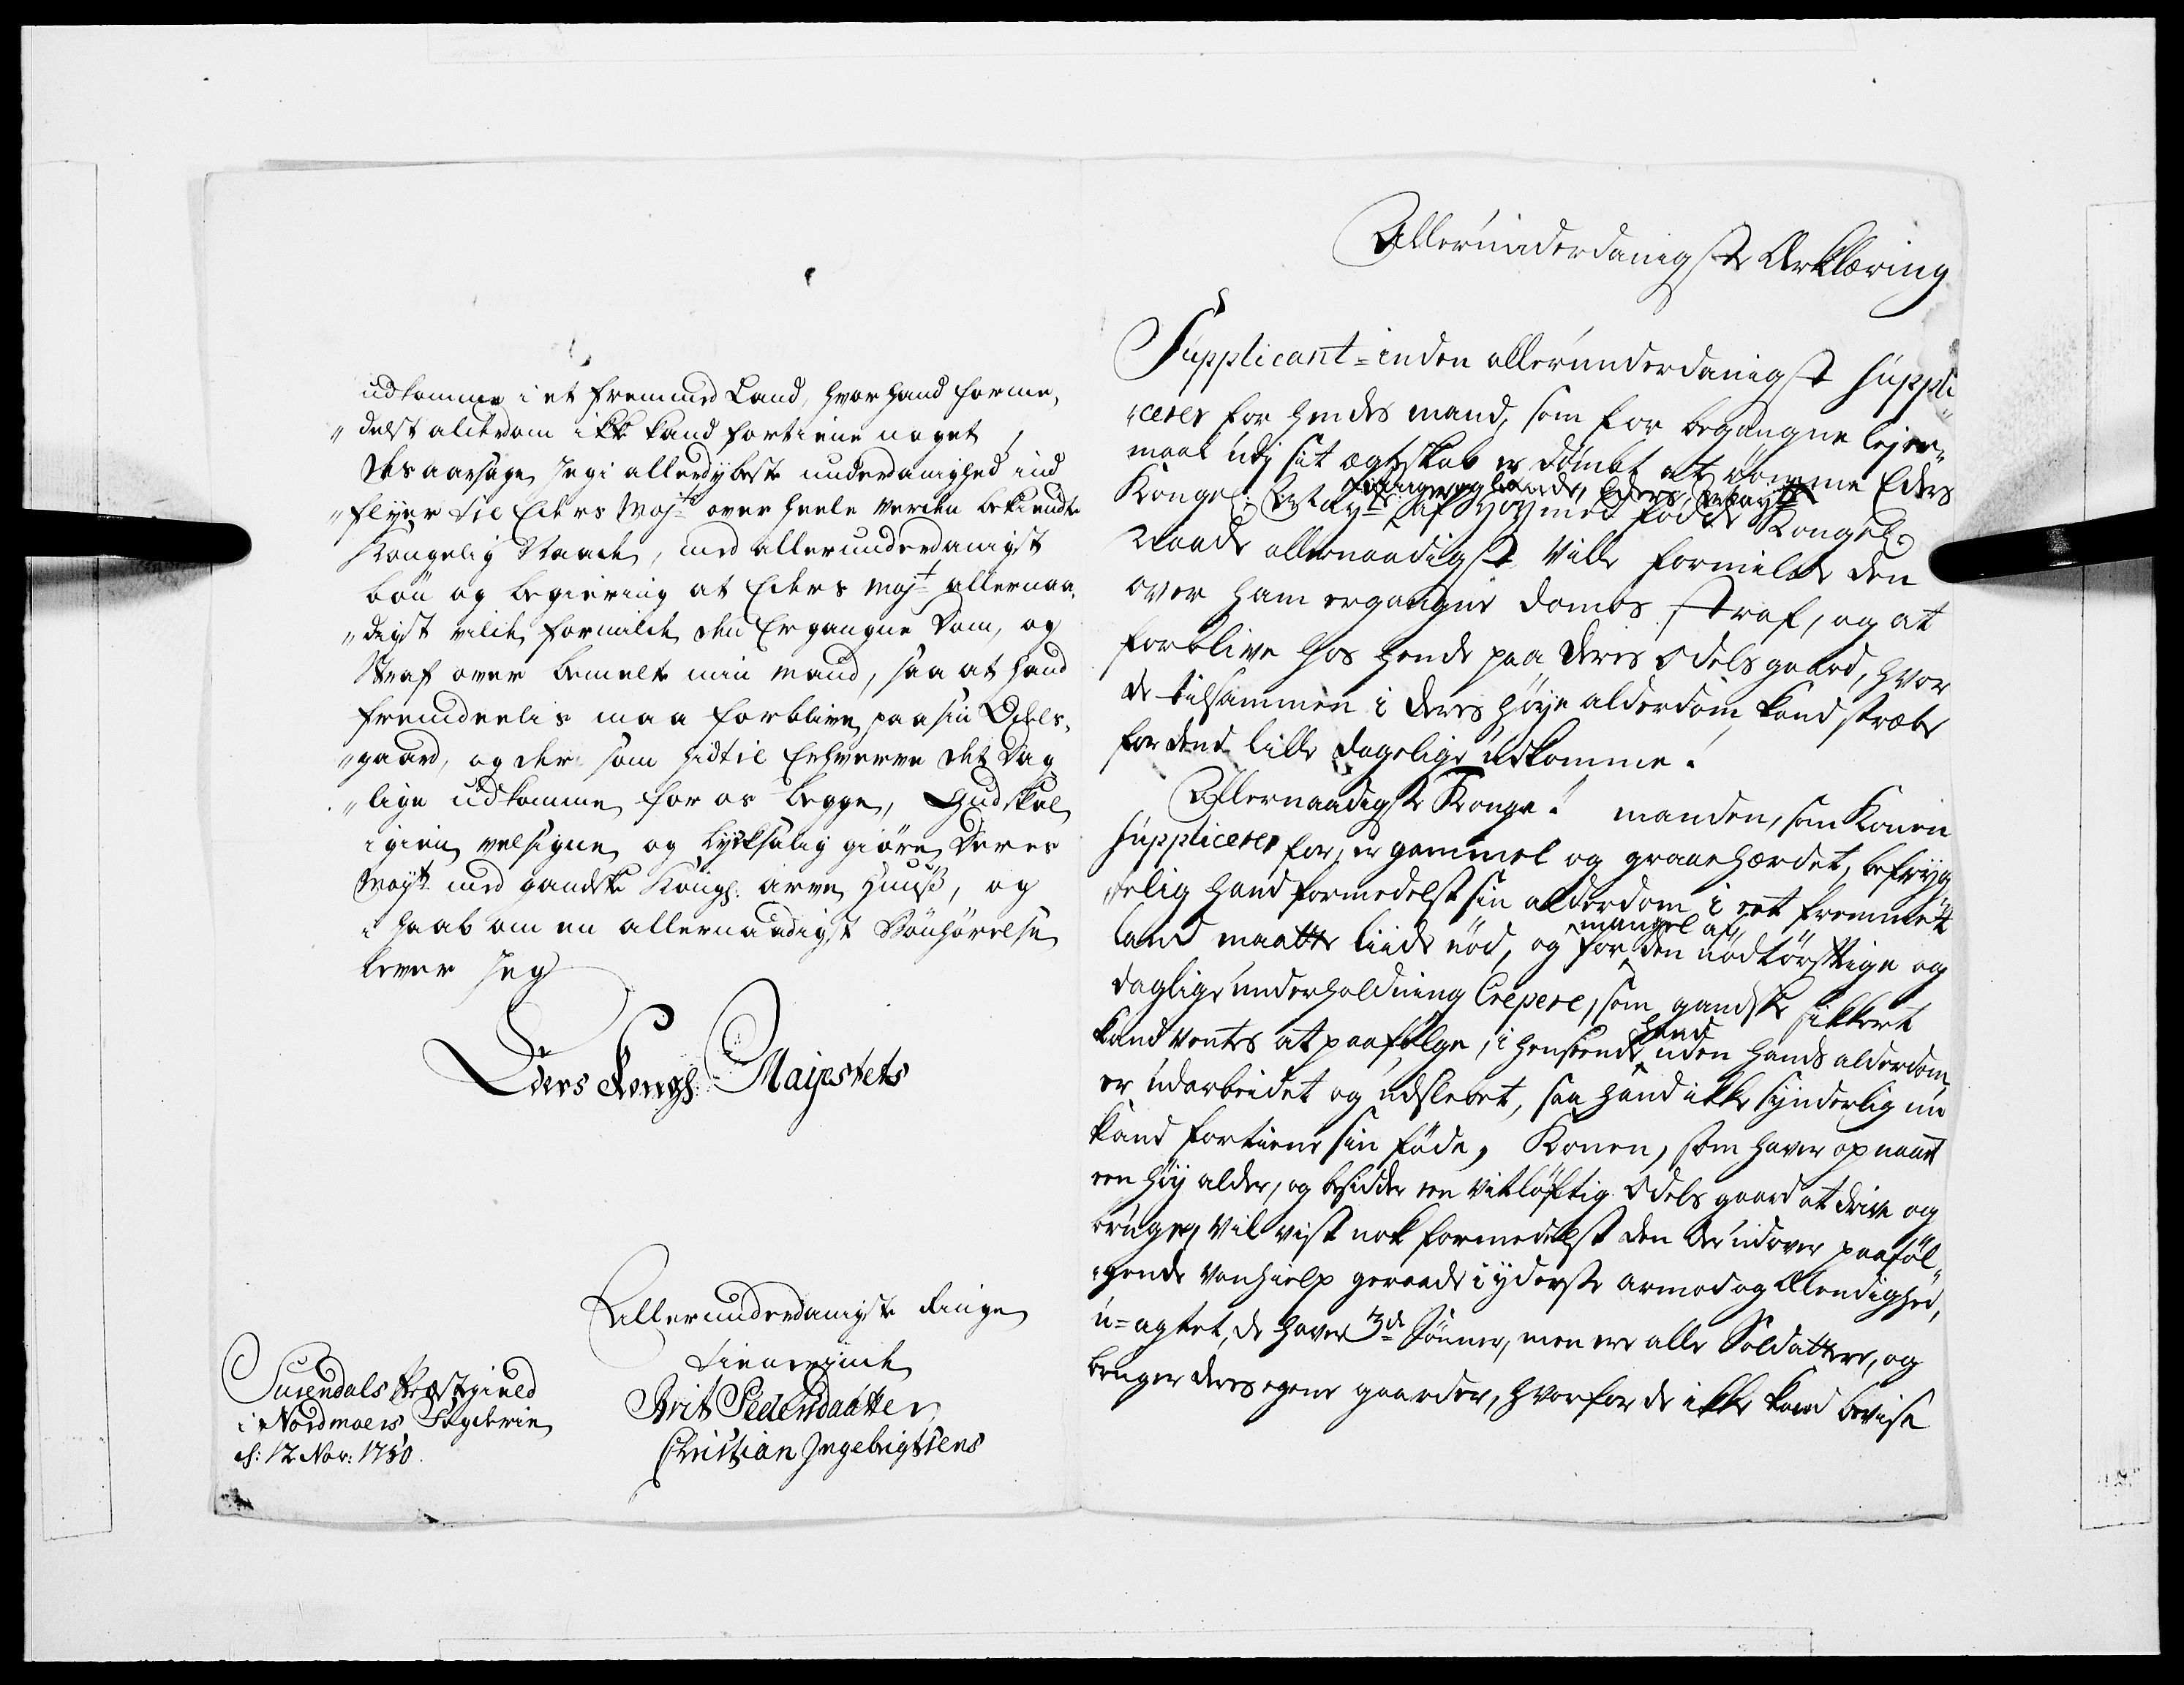 udkomme i et fremmed Land, hvor hand forme,
„delst alderdom ikke kand fortiene noget,
Des aarsage jeg i allerdybeste underdanighed ind
„flyer til Eders Maj:t over heele verden bekiendte
Kongelig Naade, med allerunderdanigst
bön og begiering at Eders Maj:t allernaa,
„digst vilde formilde den Ergangne Dom, og
Straf over bemelte min mand, saa at hand
fremdeelis maa forblive paa sin Odels,
„gaard, og der som hidtil Erhverve det Dag
„lige udkomme for os begge, Gud skal
igien velsigne og lycksalig giöre Deres
Mayt: med gandske Kongl: arve Huuß, og
i haab om en allernaadigst Bönhörelse
lever jeg
Eders Kongl: Maijestets
Allerunderdanigste ringe
tienerinde
Brit Pedersdaatter
Christian Ingebrigtsens
Surendals Præstegield
i Nordmoers Fogderie
d: 12 Nov: 1750.
Allerunderdanigste Erklæring
Supplicant-inden allerunderdanigst suppli„
„cerer for hendes mand, som for begangne lejer„
maal udj sit ægteskab er dömbt at römme Eders
Kongel: May:ts Riger og Lande, Eders May:tt
af Höy med föd Kongel:
Naade allernaadigst ville formilde den
over ham ergangne dombs straf, og at
forblive hos hende paa deris Odels gaard, hvor
de tilsammen i deres höye alderdom kand stræbe
for dend lille dagelige udkomme.
Allernaadigste Konge! manden, som Konen
supplicerer for, er gammel og graaehærdet, befryg
„telig hand formedelst sin alderdom i eet fremmet
land maatte liide nöd, og for mangel af den nödtörfftige og
daglige underholdning Crepere, som gandske sikkert
kand ventes at paafölge, i henseende hand uden hands alderdom
er udarbeidet og udslebet, saa hand ikke synderlig nu
kand fortiene sin föde, Konen, som haver opnaaet
een höy alder, og besidder een vitlöftig Odels gaard at drive og
bruge, vil vist nok formedelst den der udover paaföl„
„gende vanhielp geraade i yderste armod og Elendighed,
u-agtet, de haver 3de Sönner, men ere alle Soldattere, og
bruger deres egene gaarder, hvorfor de ikke kand bevise